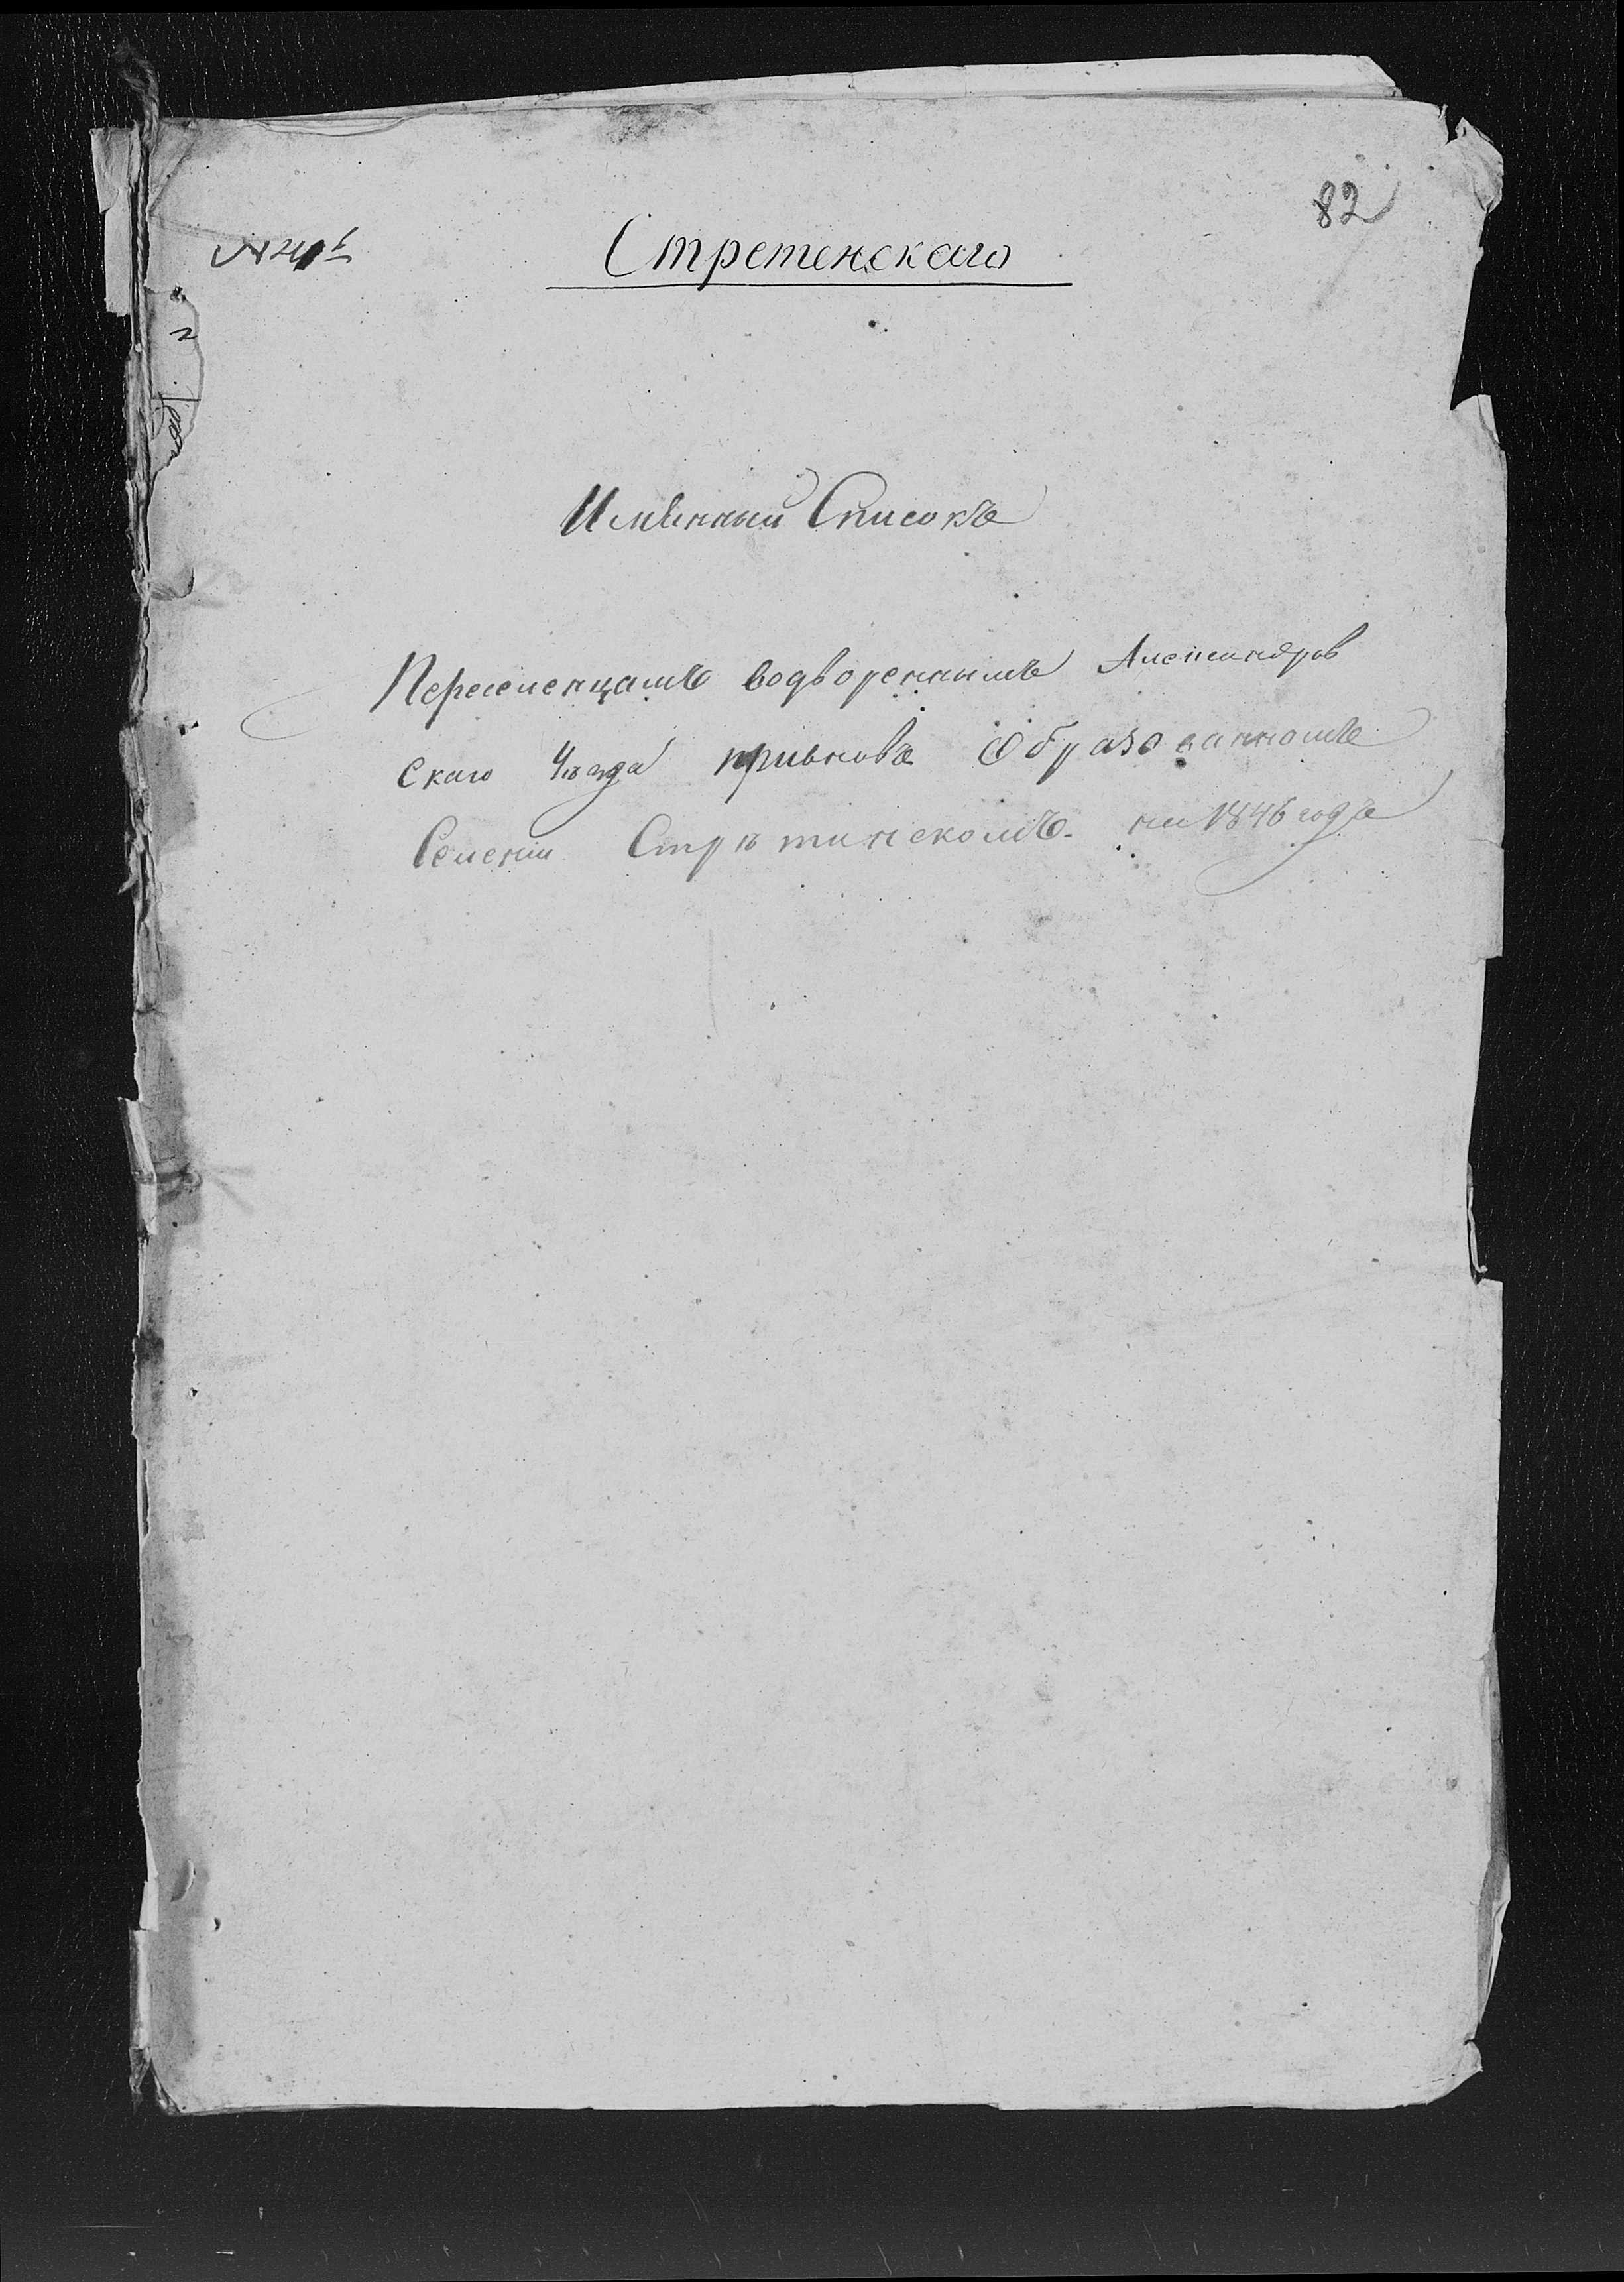 82
Стретенскаго
Именный Списокъ
Переселенцамъ водвореннымъ Александров
скаго Уѣзда привновь Образованномъ
Селении Стрѣтинскомъ. на 1846 годъ